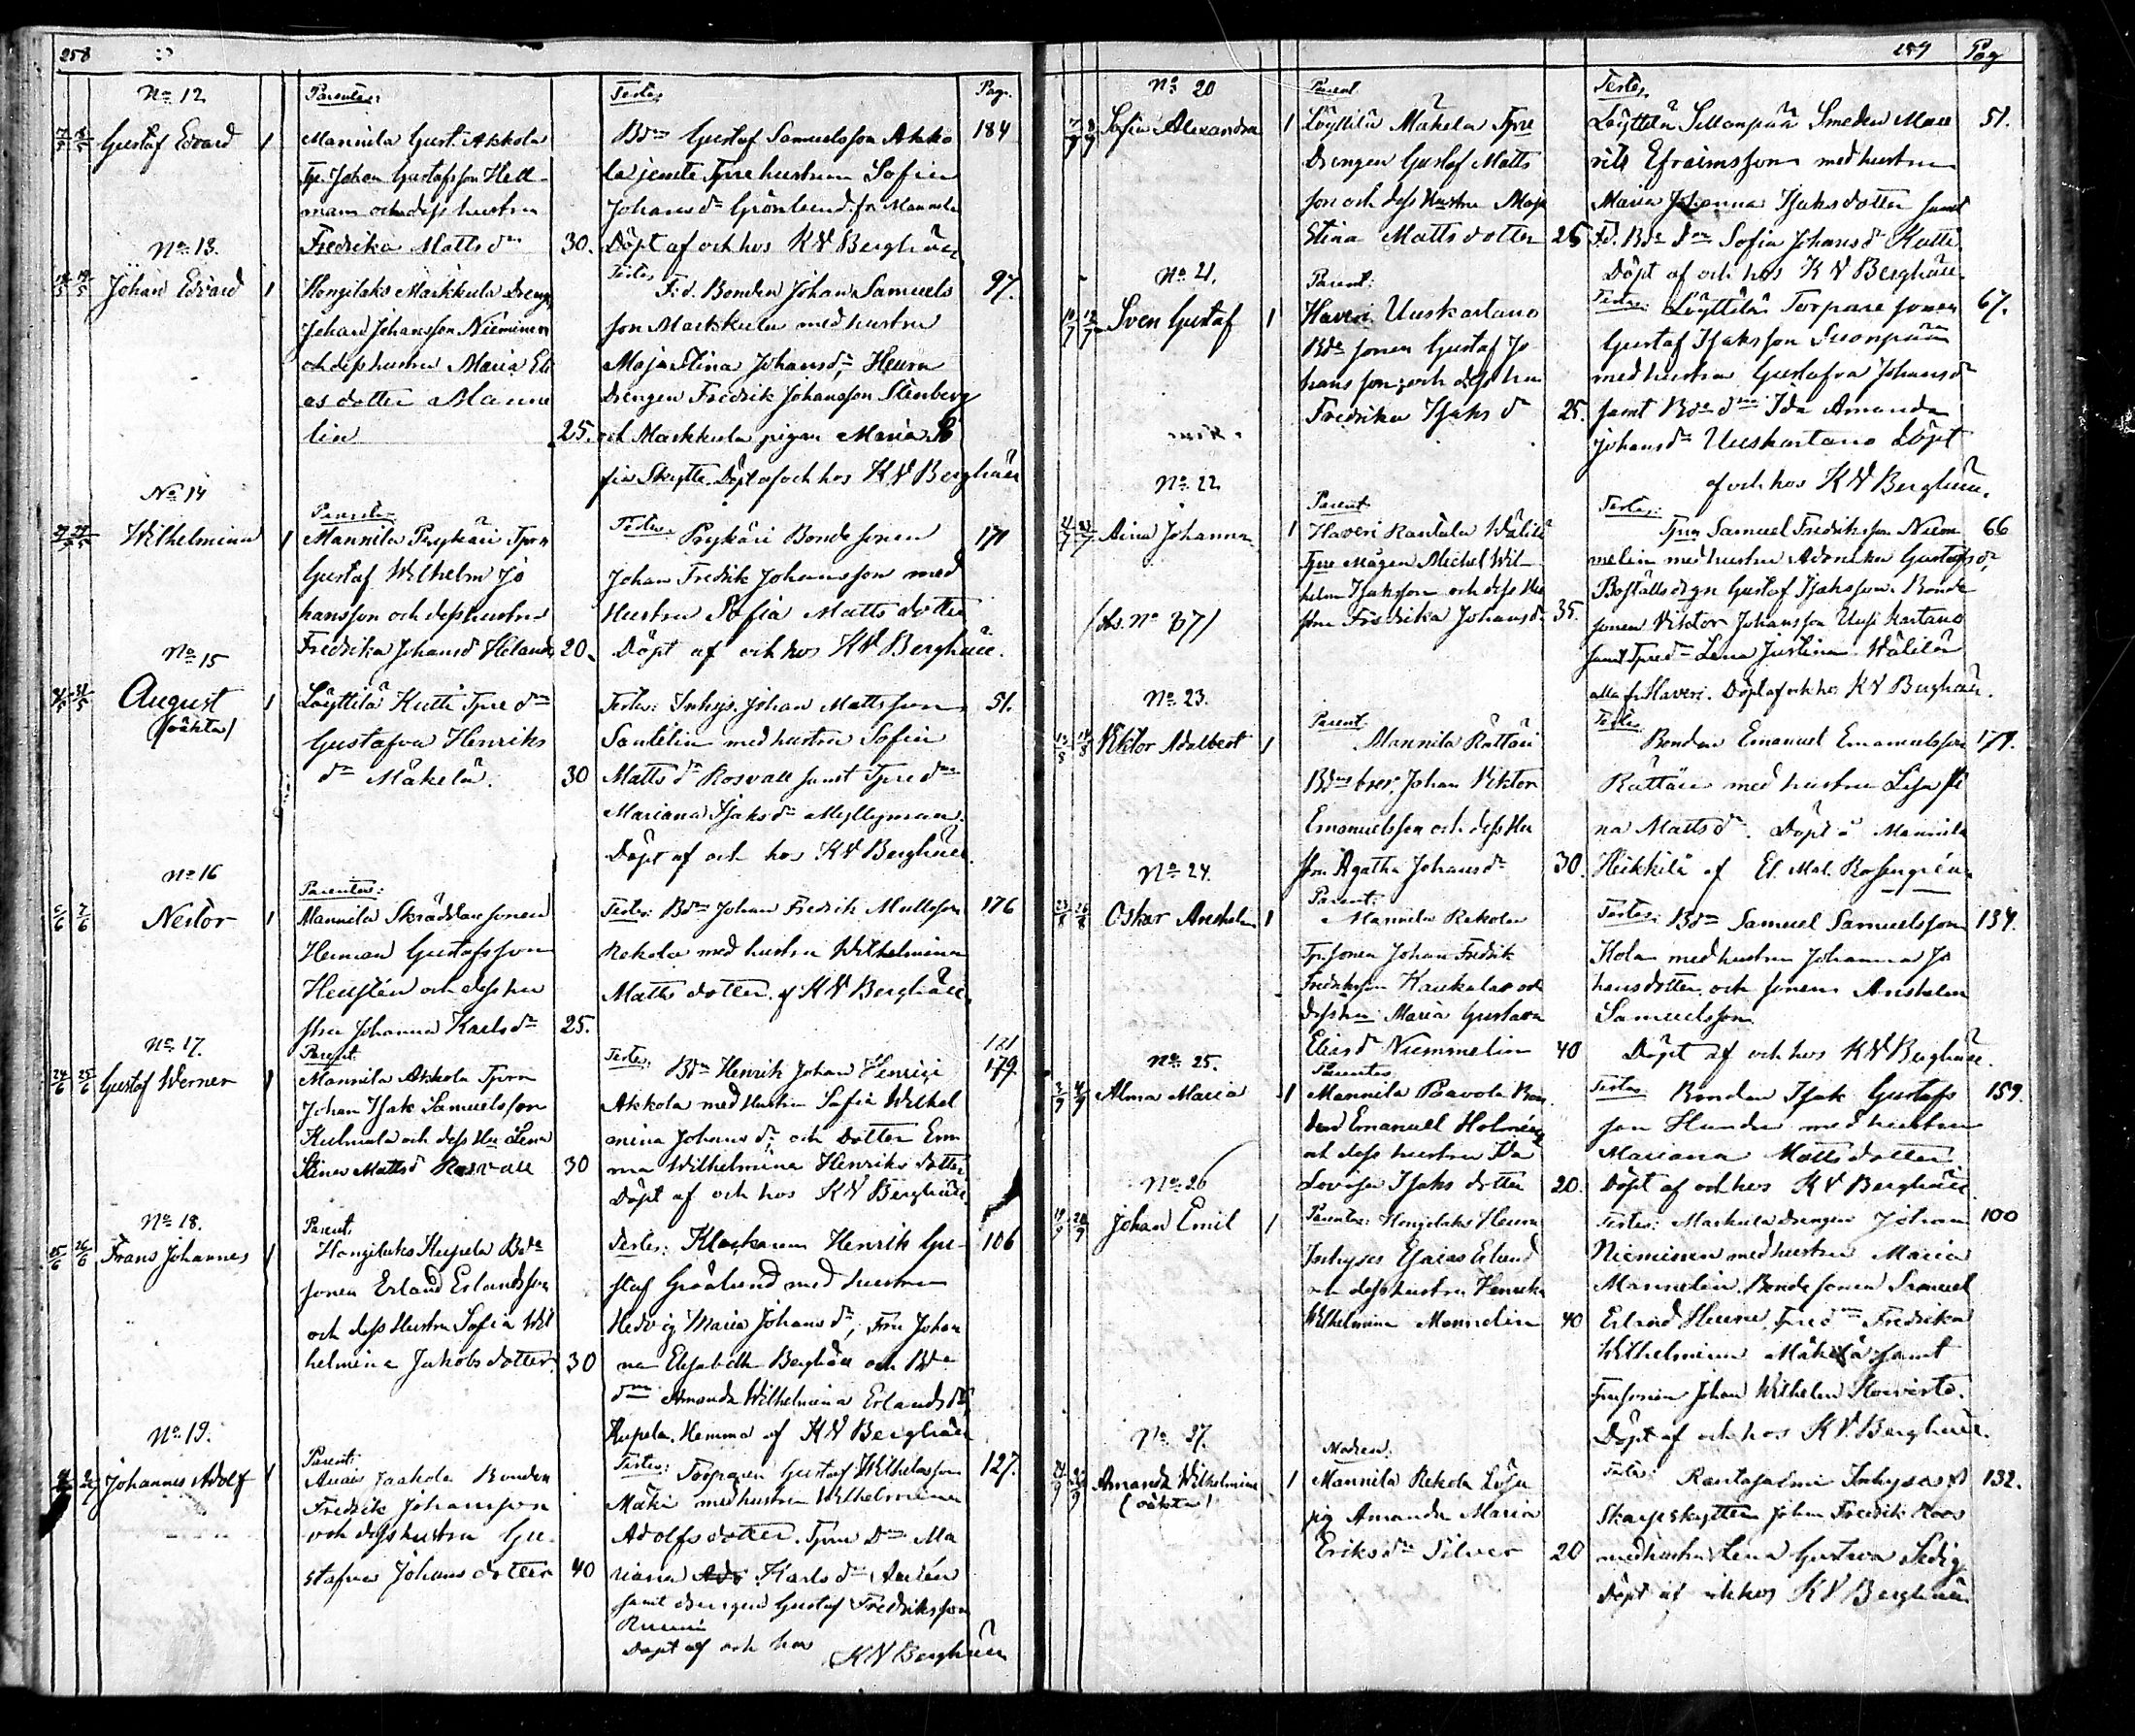 258
No 12
Parentes:
Testes
Pag.
17/5 18/5 Gustaf Edvard 1
Mannila Gust. Akkola
Tp. Johan Gustafsson Hell-
man och dess hustru
Fredrika Matts dr 30.
Bdn Gustaf Samuelsson Akko 184
la jemte Tpre hustrun Sofia
Johans dr Grönlund fr Mannila
Döpt af och hos KV Berghäll
No 13.
Johan Edvard 1
Hongilaks Markkula Dreng
Johan Johansson Nieminen
och dess hustru Maria Eli
as dotter Manne
lin 25.
Testes F.d. Bonden Johan Samuels 97.
son Markkula med hustru
Maja Stina Johansdr, Heura
Drengen Fredrik Johansson Stenberg
och Markkula pigan Maria So
fia Skytte. Döpt af och hos KV Berghäll
No 14
Parentes
Wilhelmina 1
Mannila Prykäri Tprn
Gustaf Wilhelm Jo
hansson och dess hustru
Fredrika Johansd Helander 20.
Testes Prykäri Bonde sonen 171
Johan Fredrik Johansson med
Hustru Sofia Matts dotter
Döpt af och hos KV Berghäll.
No 15
31/5 31/5 August 1
(oäkta)
Löyttilä Kutti Tpre dn
Gustafva Henriks
dr Mäkelä. 30
Testes: Inhys. Johan Mattsson 51.
Santelin med hustru Sofia
Matts dr Rosvall samt Tpre dn
Mariana Isaks dr Myllymaa.
Döpt af och hos KV Berghäll
No 16
Parentes:
5/6 7/6 Nestor 1
Mannila Skräddaresonen
Herman Gustafsson
Hellstén och dess hu
stru Johanna Karls dr 25.
Testes: Bdn Johan Fredrik Mattsson 176
Rekola med hustru Wilhelmina
Matts dotter. af KV Berghäll.
No 17.
Parent
24/6 25/6 Gustaf Werner 1
Mannila Akkola Tprn
Johan Isak Samuelsson
Kulmala och dess Hu Lena
Stina Mattsd Rosvall 30
121
Testes: Bdn Henrik Johan Henrici 179
Akkola med Hustru Sofia Wilhel
mina Johans dr, och Dotter Em
ma Wilhelmina Henriks dotter
Döpt af och hos KV Berghäll
No 18.
Parent.
25/6 26/6 Frans Johannes 1
Hongilaks Kupela Bde
sonen Erland Erlandsson
och dess Hustru Sofia Wil
helmina Jakobs dotter. 30
Testes: Klockaren Henrik Gu- 106
staf Grönlund med hustru
Hedvig Maria Johans dr, Fru Johan
na Elisabeth Berghäll och Bde
dn Amanda Wilhelmina Erlands dr
Kupela. Hemma af KV Berghäll
No 19.
Parent:
Johannes Adolf 1
Jaakola Bonden
Fredrik Johansson
och dess hustru Gu-
stafva Johans dotter 40
Testes: Torparen Gustaf Wilhelmsson 127.
Mäki med hustru Wilhelmina
Adolfs dotter. Tpre Dn Ma
riana Karls dr
samt drengen Gustaf Fredriksson
Döpt af och hos KV Berghäll
259 Pag
No 20
Parent
Testes
7/7 8/7 Sofia Alexandra 1
Löyttilä Mäkelä Tpre
Drengen Gustaf Matts
son och dess Hustru Maja
Stina Matts dotter 25
Löyttilä Sillanpää Smeden Mau 51.
ritz Efraimsson med hustru
Maria Johanna Isaksdotter samt
Fd. Bde dn Sofia Johansdr Kutti
Döpt af och hos KV Berghäll
No 21.
Parent:
Sven Gustaf 1
Haveri Uuskartano
Bde sonen Gustaf Jo
hansson, och dess hu
Fredrika Isaks dr 25.
Testes: Löyttilä Torpare sonen 67.
Gustaf Isaksson Suonpää
med hustru Gustafva Johansdr
samt Bde dn Ida Amanda
Johansdr Uuskartano Döpt
af och hos KV Berghäll.
No 22
Parent
Aina Johanna 1
Haveri Rantala Wälilä
Tpre Mågen Michel Wil
helm Isaksson och dess Hu
stru Fredrika Johansdr 35.
Testes:
Tprn Samuel Fredriksson Num 66
melin med hustru Adamina Gustafsdr
Boställs drgn Gustaf Isaksson Bonde
sonen Viktor Johansson Uusikartano
samt Tpredr Lena Justina Wälilä
alla fr Haveri. Döpt af och hos KV Berghäll.
No 23.
Parent.
Viktor Adalbert 1
Mannila Rättäri
Bdns bror Johan Viktor
Emanuelsson och dess Hu
stru Agatha Johansdr 30.
Testes
Bonden Emanuel Emanuelsson 177.
Rättäri med hustru Lisa Sti
na Mattsdr. Döpt i Mannila
Heikkilä af El. Mal. Rosengrén
No 24.
Parent:
Oskar Anshelm 1
Mannila Rekola
Tp. sonen Johan Fredrik
Fredriksson Kaukola och
dess hu Maria Gustava
Eliasd Nummelin 40
Testes: Bdn Samuel Samuelsson 134.
Kola med hustru Johanna Jo
hans dotter och sonen Anshelm
Samuelsson
Döpt af och hos KV Berghäll.
No 25.
Parentes
3/9 4/9 Alma Maria 1
Mannila Paavola Bon
den Emanuel Holmén
och dess hustru Ida
Lovisa Isaks dotter 20.
Testes Bonden Isak Gustafs 159.
son Hunda med hustru
Mariana Matts dotter
Döpt af och hos KV Berghäll
No 26
Johan Emil 1
Parentes: Hongilaks Heura
Inhyses Esaias Erland
och dess hustru Henrika
Wilhelmina Mannelin 40
Testes: Markkula drengen Johan 100
Nieminen med hustru Maria
Mannelin. Bonde sonen Samuel
Erland Heura, Tpre dn Fredrika
Wilhelmina Mäkelä samt
Tpresonen Johan Wilhelm Koivisto.
Döpt af och hos KV Berghäll.
No 27.
Modren:
Amanda Wilhelmina 1
(oäkta)
Mannila Rekola Lösa
pig Amanda Maria
Eriks dr Silver 20
Testes: Rantasalmi Inhyses fd 132.
Skarpskytten Johan Fredrik Roos
med hustru Lena Gustava Sedig
Döpt af och hos KV Berghäll